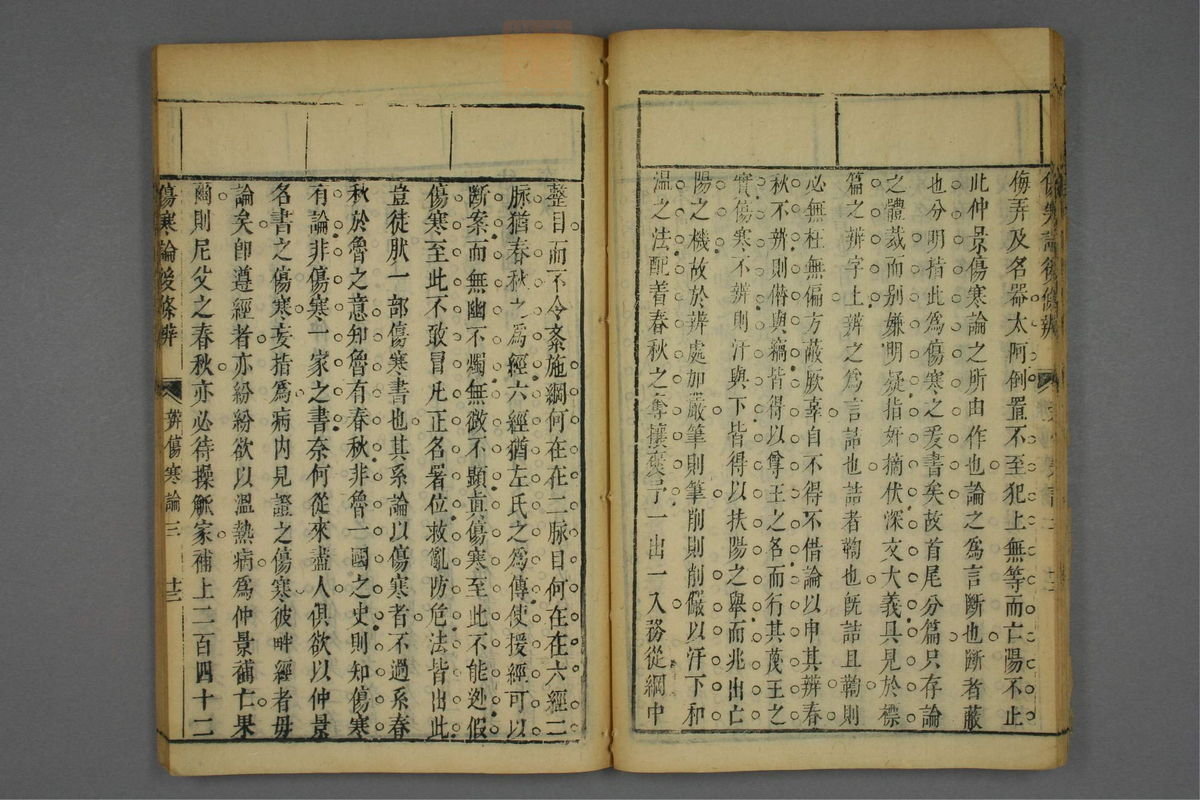 傷寒論後條辨
侮弄及名器太阿倒置不至犯上無等而亡陽不止
此仲景傷寒論之所由作也論之為言斷也斷者蔽
也分明指此為傷寒之爰書矣故首尾分篇只存論
之體裁而别嫌明疑指奸摘伏深文大義具見於標
篇之辨字上辨之為言詰也詰者鞫也旣詰且鞫則
必無枉無偏方蔽厥辜自不得不借論以申其辨春
秋不辨則僭與竊皆得以尊王之名而行其蔑王之
實傷寒不辨則汗與下皆得以扶陽之舉而兆出亡
陽之機故於辨處加嚴筆則筆削則削嚴以汗下和
温之法配着春秋之奪攘褒予一出一入務從綱中
整目而不令紊施綱何在在二脉目何在在六經二
脉猶春秋之為經六經猶左氏之為傳使援經可以
斷案而無幽不燭無微不顯眞傷寒至此不能迯假
傷寒至此不敢冒凡正名署位救亂防危法皆出此
豈徒肰一部傷寒書也其系論以傷寒者不過系春
秋於魯之意知魯有春秋非魯一國之史則知傷寒
有論非傷寒一家之書奈何從來盡人俱欲以仲景
名書之傷寒妄指為病内見證之傷寒彼畔經者毋
論矣卽遵經者亦紛紛欲以溫熱病為仲景補亡果
爾則尼父之春秋亦必待操觚家補上二百四十二
傷寒論後條辨 辨傷寒論三 十三